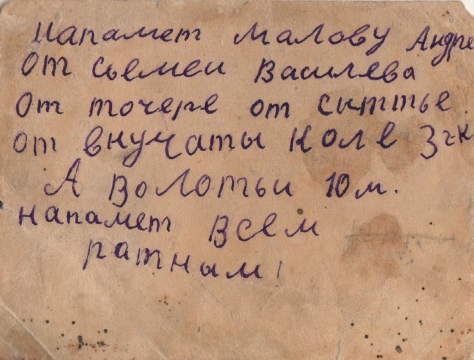 Напамет Малову Андре
От сьемеи Василева
От точере от ситтье
От внучаты Коле 3гк
А Волотьи 10м.
напамет Всем
ратным!